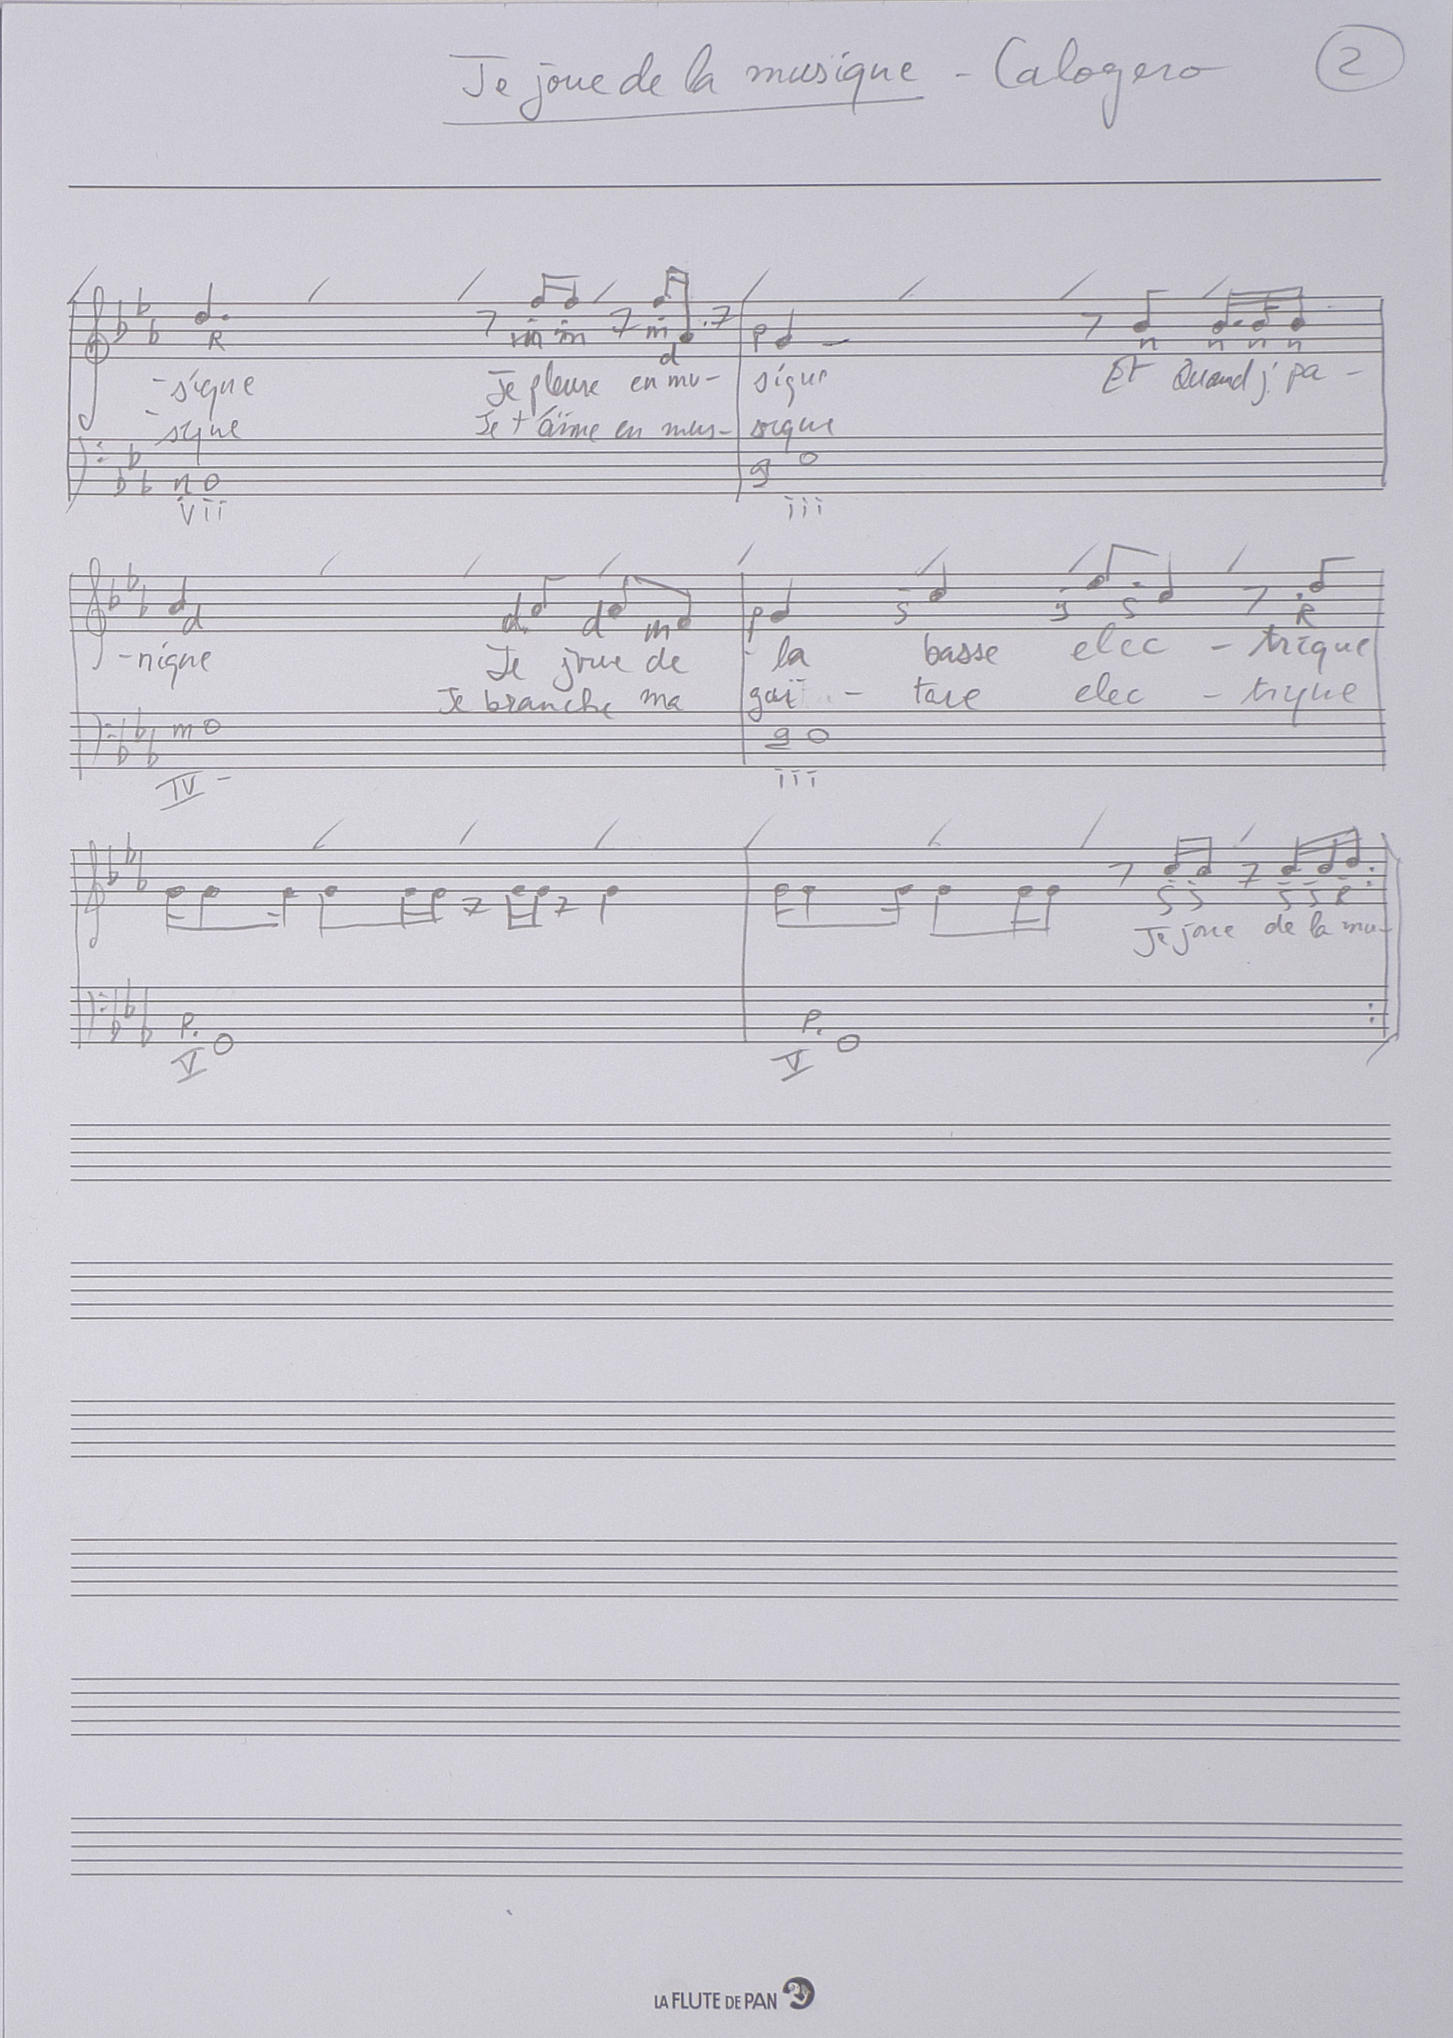 Je joue de la musique - Calogero 2
R m m m d p n n n n
- sique Je pleure en mu- sique Et Quand j' pa -
- sique Je t'aime en mus- sique
n g
vii iii
d d d m p s g s R
- nique Je joue de la basse elec - trique
Je branche ma gui - tare elec - trique
m g
IV - iii
s s s s R
Je joue de la mu-
P. P.
V V
LA FLUTE DE PAN